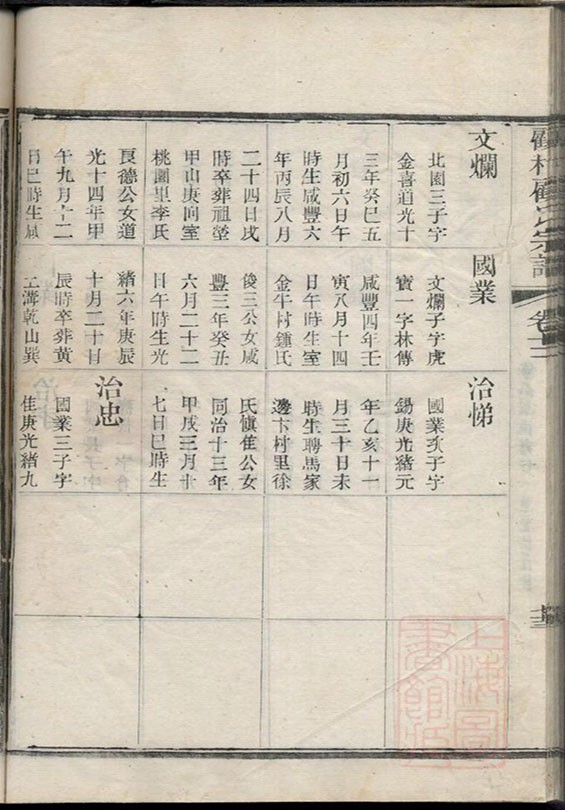 宗譜
文爛
北園三子字
金喜道光十
三年癸巳五
月初六日午
時生咸豐六
年丙辰八月
二十四日戌
時卒葬祖塋
甲山庚向室
桃園里李氏
良德公女道
光十四年甲
午九月十二
日巳時生咸
國業
文爛子字虎
寶一字林傳
咸豐四年壬
寅八月十四
日午時生室
金牛村鍾氏
俊三公女咸
豐三年癸丑
六月二十二
日午時生光
緒六年庚辰
十月二十日
辰時卒葬黃
土溝乾山巽
治悌
國業次子字
錫庚光緒元
年乙亥十一
月三十日未
時生聘馬家
邊卞村里徐
氏慎隹公女
同治十三年
甲戌三月廿
七日巳時生
治忠
國業三子字
佳庚光緒九
上海圖
書館藏